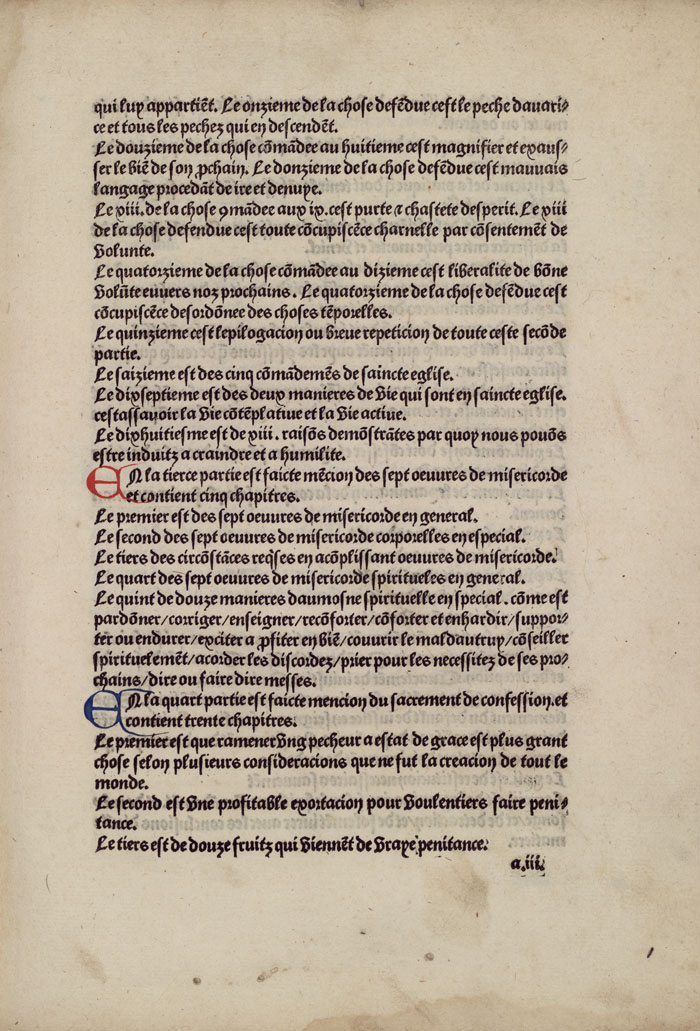 qui luy appartiẽt. Le onzieme de la chose defẽdue cest le peche dauari⸗
ce et tous les pechez qui en descendẽt.
Le douzieme de la chose cõmãdee au huitieme cest magnifier et exaus⸗
ser le biẽ de son ꝓchain. Le donzieme de la chose defẽdue cest mauuais
langage procedãt de ire et denuye.
Le xiii. de la chose ꝯmãdee aux ix. cest purte ⁊ chastete desperit. Le xiii
de la chose defendue cest toute cõcupiscẽce charnelle par cõsentemẽt de
volunte.
Le quatorzieme de la chose cõmãdee au dizieme cest liberalite de bõne
volũte euuers noz prochains. Le quatorzieme de la chose defẽdue cest
cõcupiscẽce desordõnee des choses tẽporelles.
Le quinzieme cest lepilogacion ou breue repeticion de toute ceste secõde
partie.
Le saizieme est des cinq cõmãdemẽs de saincte eglise.
Le dixseptieme est des deux manieres de vie qui sont en saincte eglise.
cestassauoir la vie cõtẽplatiue et la vie actiue.
Le dixhuitiesme est de xiii. raisõs demõstrãtes par quoy nous pouõs
estre induitz a craindre et a humilite.
EN la tierce partie est faicte mẽcion des sept oeuures de misericorde
et contient cinq chapitres.
Le premier est des sept oeuures de misericorde en general.
Le second des sept oeuures de misericorde corporelles en especial.
Le tiers des circõstãces reqses en acõplissant oeuures de misericorde.
Le quart des sept oeuures de misericorde spiritueles en general.
Le quint de douze manieres daumosne spirituelle en special. cõme est
pardõner/corriger/enseigner/recõforter/cõforter et enhardir/suppor⸗
ter ou endurer/exciter a ꝓfiter en biẽ/couurir le mal dautruy/cõseiller
spirituelemẽt/acorder les discordez/prier pour les necessitez de ses pro⸗
chains/dire ou faire dire messes.
EN la quart partie est faicte mencion du sacrement de confession. et
contient trente chapitres.
Le premier est que ramener vng pecheur a estat de grace est plus grant
chose selon plusieurs consideracions que ne fut la creacion de tout le
monde.
Le second est vne profitable exortacion pour voulentiers faire peni⸗
tance.
Le tiers est de douze fruitz qui viennẽt de vraye penitance.
a.iii.